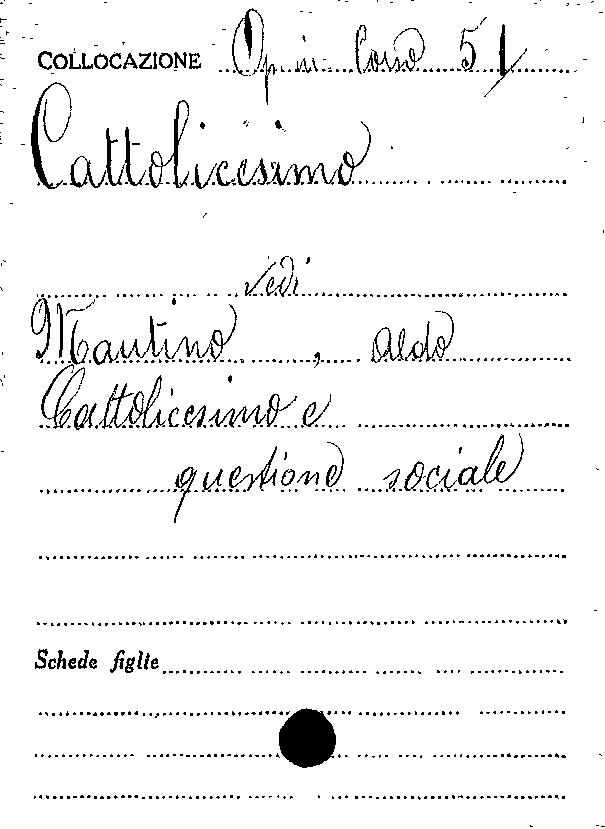 COLLOCAZIONE Op. in Corso 51
Cattolicesimo
vedi
Mautino, Aldo
Cattolicesimo e
questione sociale
Schede figlie